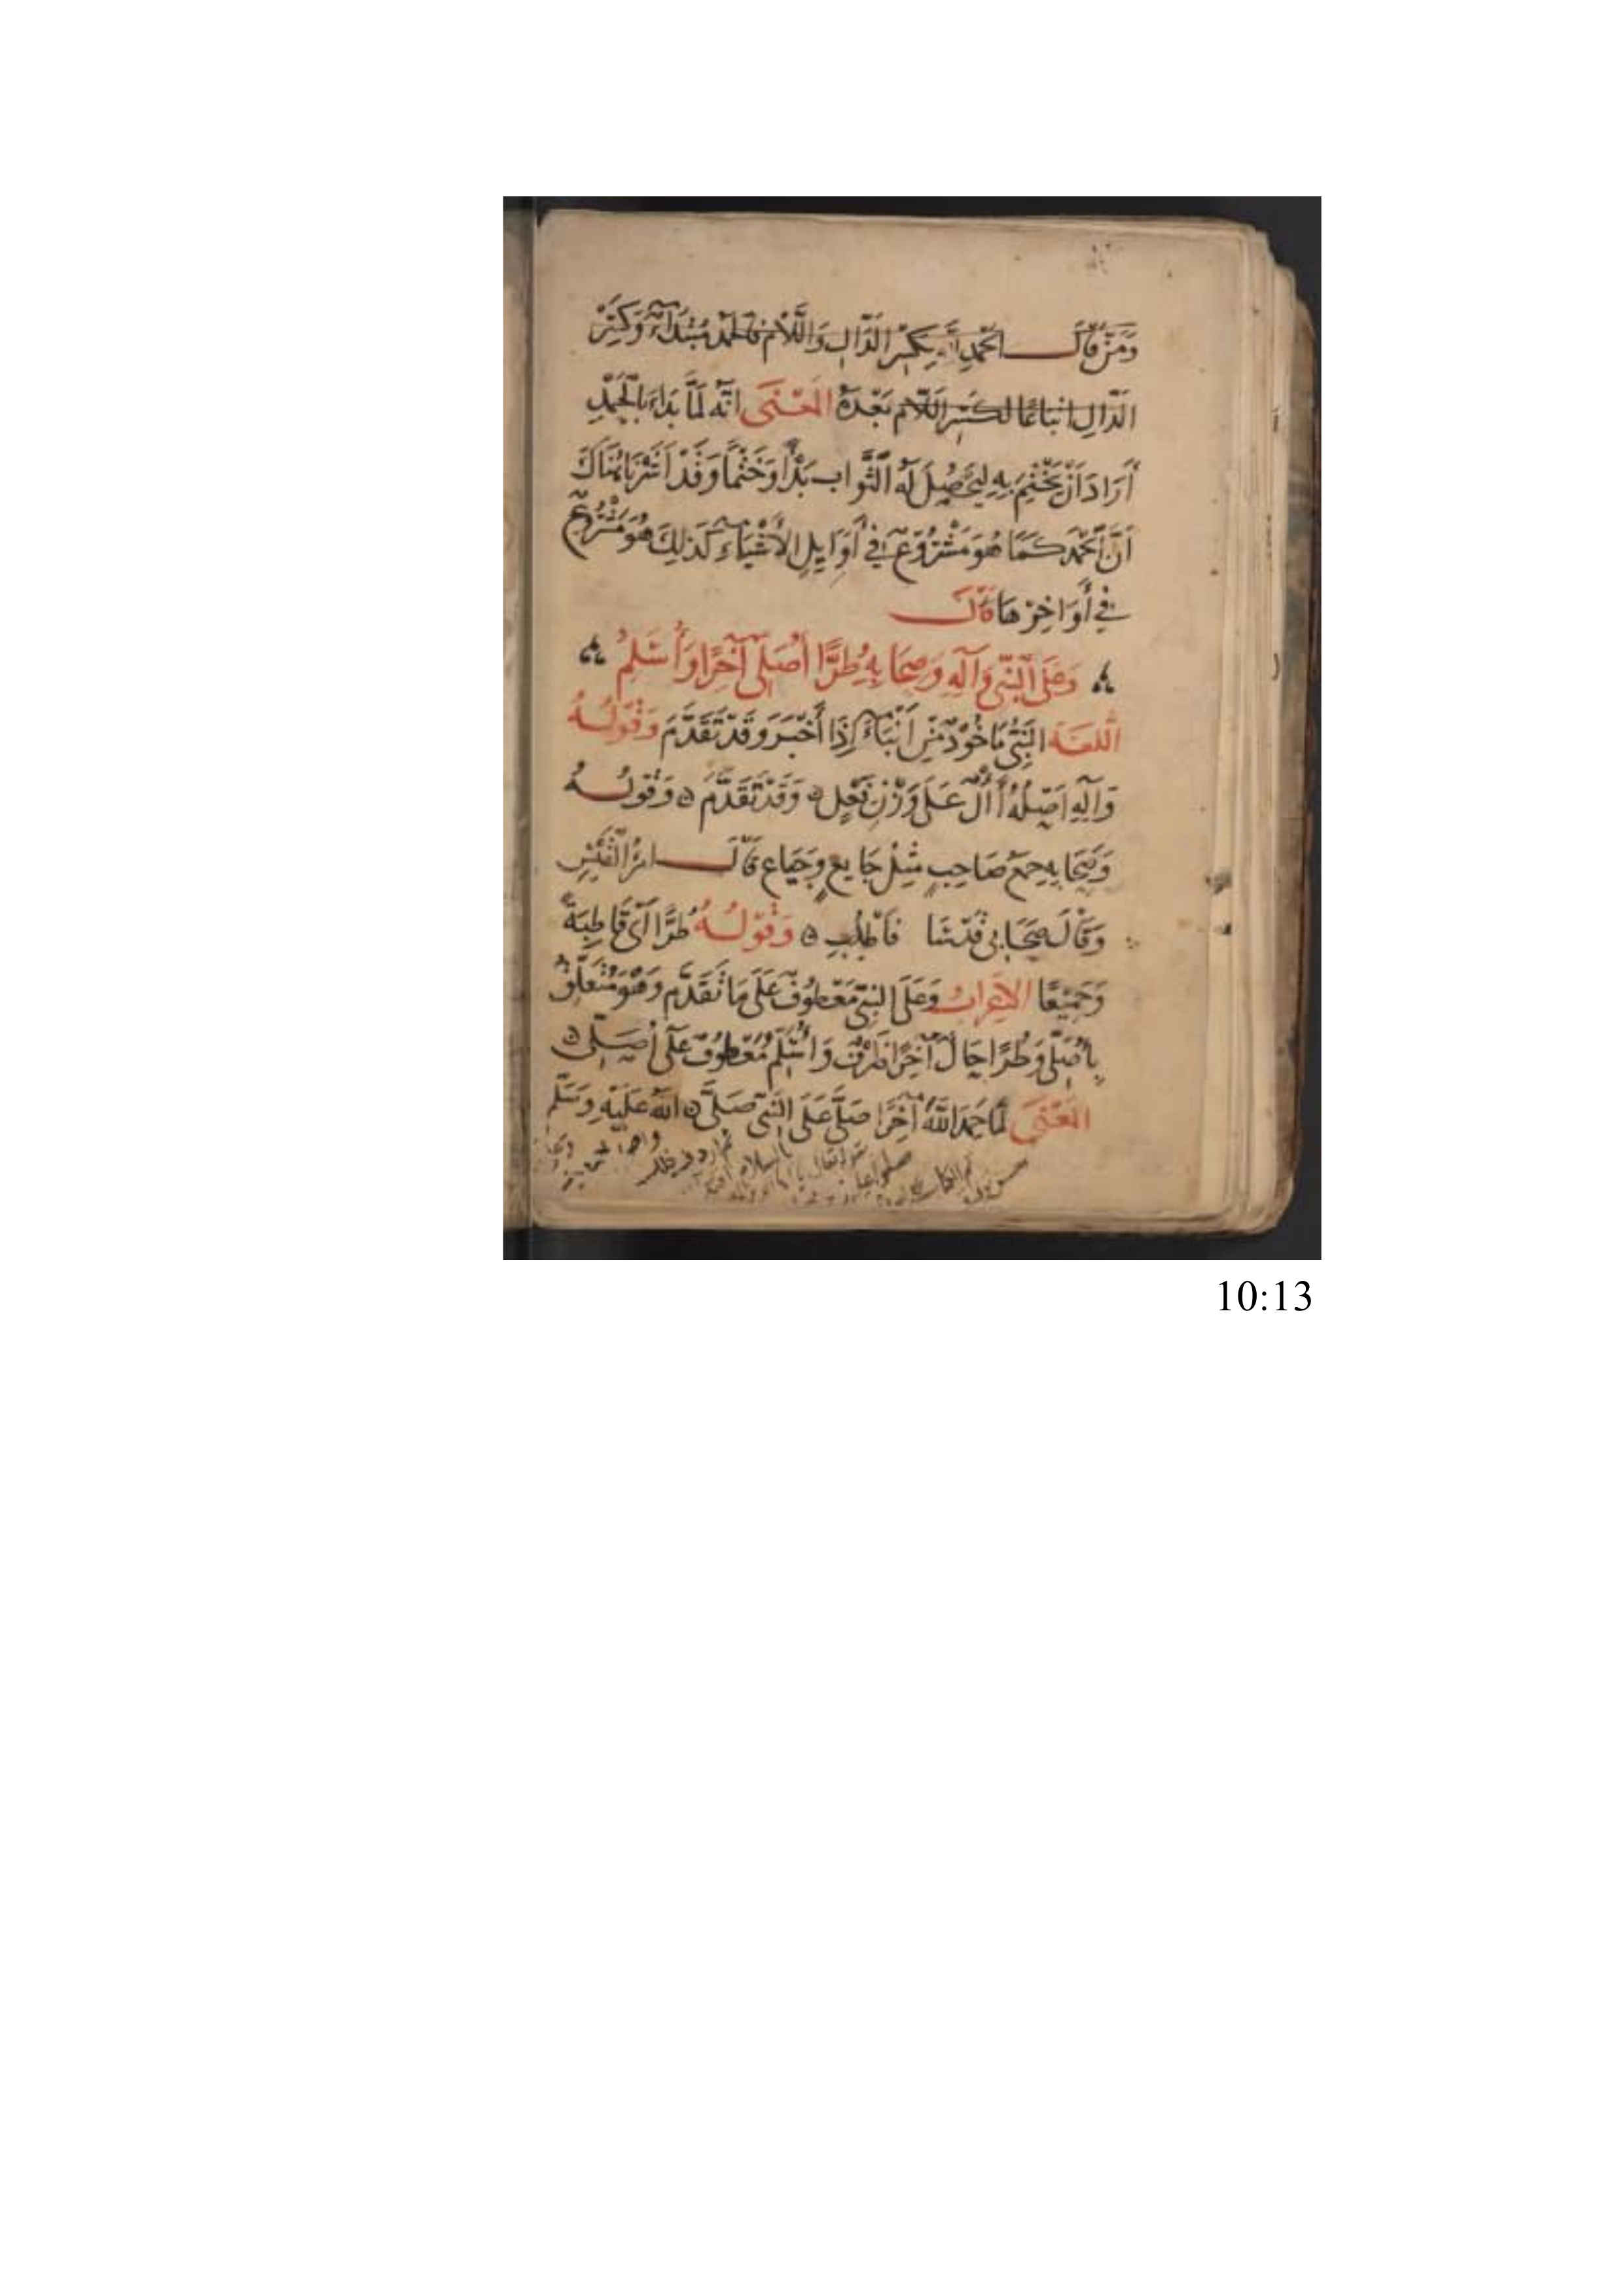 وَمَنْ قَالَ الحَمْدِ لِلَّهِ بِكَسْرِ الدَّالِ وَاللَّامِ فَالحَمْدُ مُبْتَدَاءٌ وَكَسْرُ
الدَّالِ اتْبَاعًا لكَسْرِ اللَّامِ بَعْدَهُ المَعْنَى انَّهُ لَمَّا بَدَاءَ بِالْحَمْدِ
أَرَادَ اَنْ يَخْتِمَ بِهِ لِيَحْصُلَ لَهُ الثَّوابُ بَدْأً وَخَتْمًا وَقَدْ اَشَرْنَا هُنَاكَ
اَنَّ الحَمْدَ كَمَا هُوَ مَشْرُوعٌ فِي أَوَايِلِ الأَشْيَاءِ كَذلِكَ هُوَ مَشْرُوعٌ
فِي أَوَاخِرِهَا قَالَ
وَعَلَى النَّبِيِّ وَآلِهِ وَصِحَابِهِ طُرًّا أُصَلِّى آخِرًا وَأُسَلِّمُ
اللغَة النَّبِيُّ مَاخُوذٌ مِنْ اَنْبَاءَ إِذَا أَخْبَرَ وَقَدْ تَقَدَّمَ وَقَوْلُهُ
وَآلِهِ اَصْلُهُ أَأْلٌ عَلَى وَزْنِ فَعْلٍ وَقَدْ تَقَدَّمَ وَقَولُهُ
وَصِحَابِهِ جَمْعُ صَاحِبٍ مِثْلُ جَايِعٍ وَجِيَاعٍ قَالَ امْرُ الْقَيْسِ
وَقَالَ صِحَابِي قَدْ شَا فَاطْلُبِ وَقَوْلُهُ طُرًّا اَىْ قَاطِبَةً
وَجَمِيْعًا الاعْرَابُ وَعَلَى النَّبِيِّ مَعْطُوفٌ عَلَى مَا تَقَدَّمَ وَهُوَ مُتَعَلِّقٌ
بِأُصَلِّى وَطُرًّا حَالٌ آخِرًا ظَرْفٌ وَأُسَلِّمُ مَعْطُوفٌ عَلَى أُصَلِّى
المَعْنَى لَمَّا حَمِدَ اللَّهَ آخِرًا صَلَّى عَلَى النَّبِيِّ صَلَّى اللَّهُ عَلَيْهِ وَسَلَّمَ
10:13